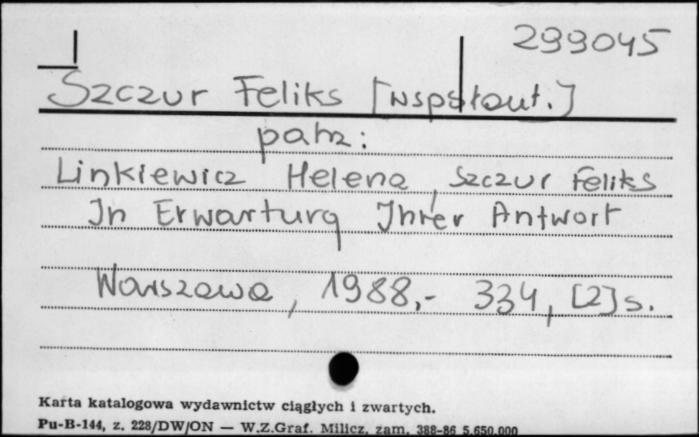 299045
Szczur Feliks [współaut.]
patrz:
Linkiewicz Helena, Szczur Feliks
In Erwartung Ihrer Antwort
Warszawa, 1988,- 334, [2] s.
Karta katalogowa wydawnictw ciągłych i zwartych.
Pu-B-144, z. 228/DW/ON — W.Z.Graf. Milicz, zam. 388-86 5.650.000